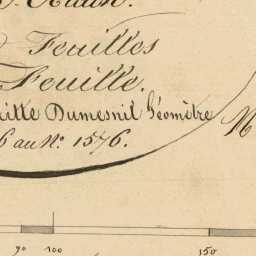 Feuilles
Feuille.
Dumesnil Géomètre
6 au N.º 1576.
90 100 150